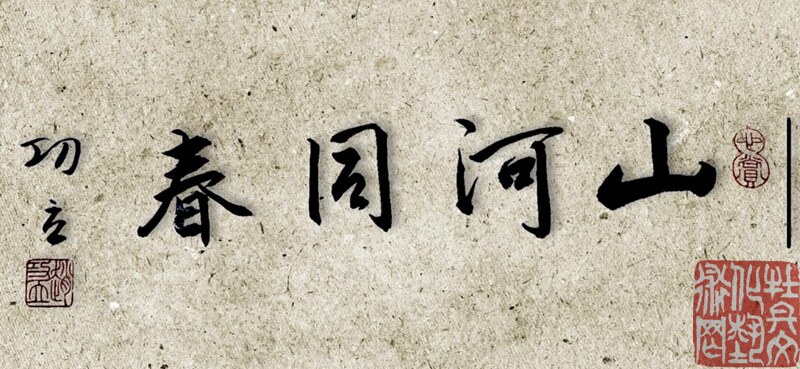 山河同春
功立